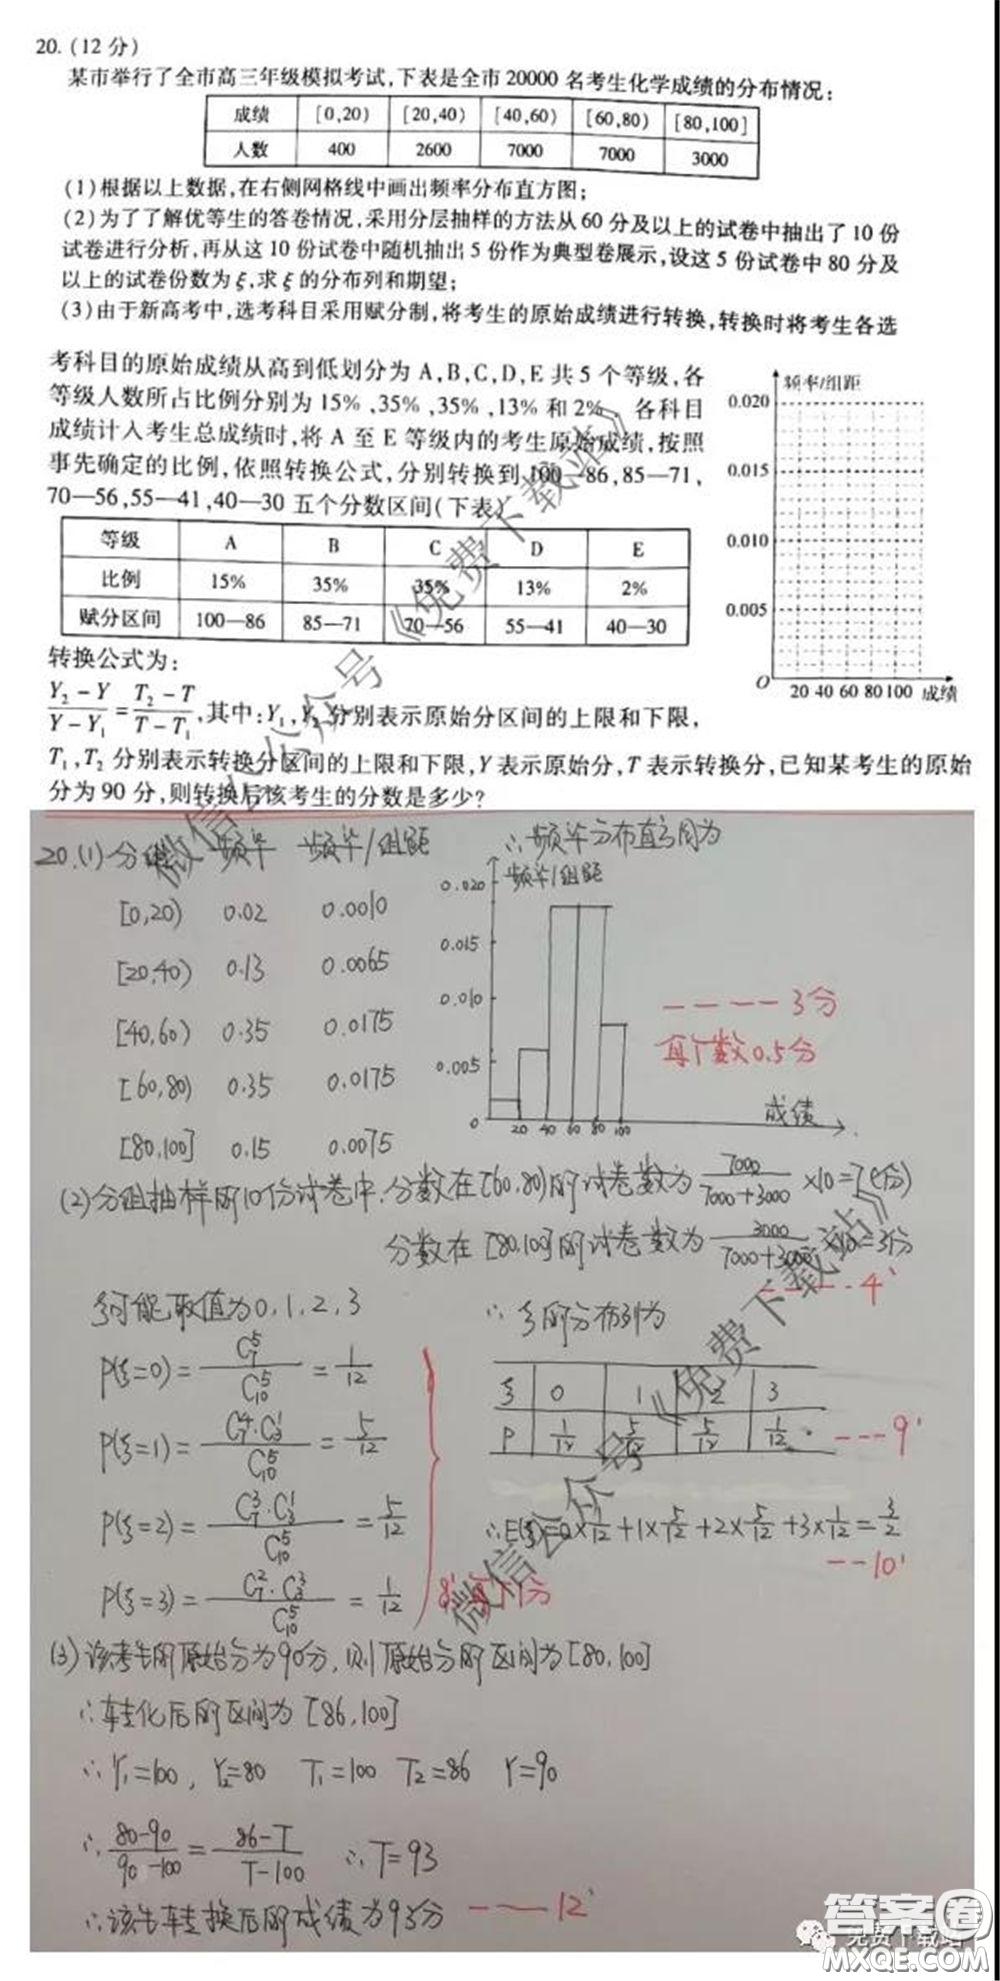 20. (12 分)
某市举行了全市高三年级模拟考试,下表是全市 20000 名考生化学成绩的分布情况:
成绩 [0,20) [20,40) [40,60) [60,80) [80,100]
人数 400 2600 7000 7000 3000
(1)根据以上数据,在右侧网格线中画出频率分布直方图;
(2)为了了解优等生的答卷情况,采用分层抽样的方法从 60 分及以上的试卷中抽出了 10 份
试卷进行分析,再从这 10 份试卷中随机抽出 5 份作为典型卷展示,设这 5 份试卷中 80 分及
以上的试卷份数为 ξ,求 ξ 的分布列和期望;
(3)由于新高考中,选考科目采用赋分制,将考生的原始成绩进行转换,转换时将考生各选
考科目的原始成绩从高到低划分为 A,B,C,D,E 共 5 个等级,各
等级人数所占比例分别为 15%,35%,35%,13% 和 2%, 各科目
成绩计入考生总成绩时,将 A 至 E 等级内的考生原始成绩,按照
事先确定的比例,依照转换公式,分别转换到 100—86,85—71,
70—56,55—41,40—30 五个分数区间(下表)
等级 A B C D E
比例 15% 35% 35% 13% 2%
赋分区间 100—86 85—71 70—56 55—41 40—30
转换公式为:
(Y₂−Y)/(Y−Y₁)=(T₂−T)/(T−T₁),其中:Y₁,Y₂ 分别表示原始分区间的上限和下限,
T₁,T₂ 分别表示转换分区间的上限和下限,Y 表示原始分,T 表示转换分,已知某考生的原始
分为 90 分,则转换后该考生的分数是多少?
频率/组距
0.020
0.015
0.010
0.005
O 20 40 60 80 100 成绩
20.(1) 分组 频率 频率/组距
[0,20) 0.02 0.0010
[20,40) 0.13 0.0065
[40,60) 0.35 0.0175
[60,80) 0.35 0.0175
[80,100] 0.15 0.0075
∴频率分布直方图为
频率/组距
0.020
0.015
0.010
0.005
0 20 40 60 80 100 成绩
----3分
每个数0.5分
(2)分组抽样的10份试卷中,分数在[60,80)的试卷数为 7000/(7000+3000) ×10=7(份)
分数在[80,100]的试卷数为 3000/(7000+3000) ×10=3份
----4'
ξ可能取值为0,1,2,3
P(ξ=0)= C₇⁵/C₁₀⁵ = 1/12
P(ξ=1)= C₇⁴·C₃¹/C₁₀⁵ = 5/12
P(ξ=2)= C₇³·C₃¹/C₁₀⁵ = 5/12
P(ξ=3)= C₇²·C₃³/C₁₀⁵ = 1/12
8' 每个1分
∴ξ的分布列为
ξ 0 1 2 3
P 1/12 5/12 5/12 1/12
---9'
∴E(ξ)=0×1/12+1×5/12+2×5/12+3×1/12=3/2
--10'
(3)该考生的原始分为90分,则原始分的区间为[80,100]
∴转化后的区间为[86,100]
∴Y₁=100, Y₂=80 T₁=100 T₂=86 Y=90
∴(80-90)/(90-100)=(86-T)/(T-100) ∴T=93
∴该生转换后的成绩为93分 ---12'
微信公众号《免费下载站》
微信公众号《免费下载站》
免费下载站
答案圈
MXQE.COM